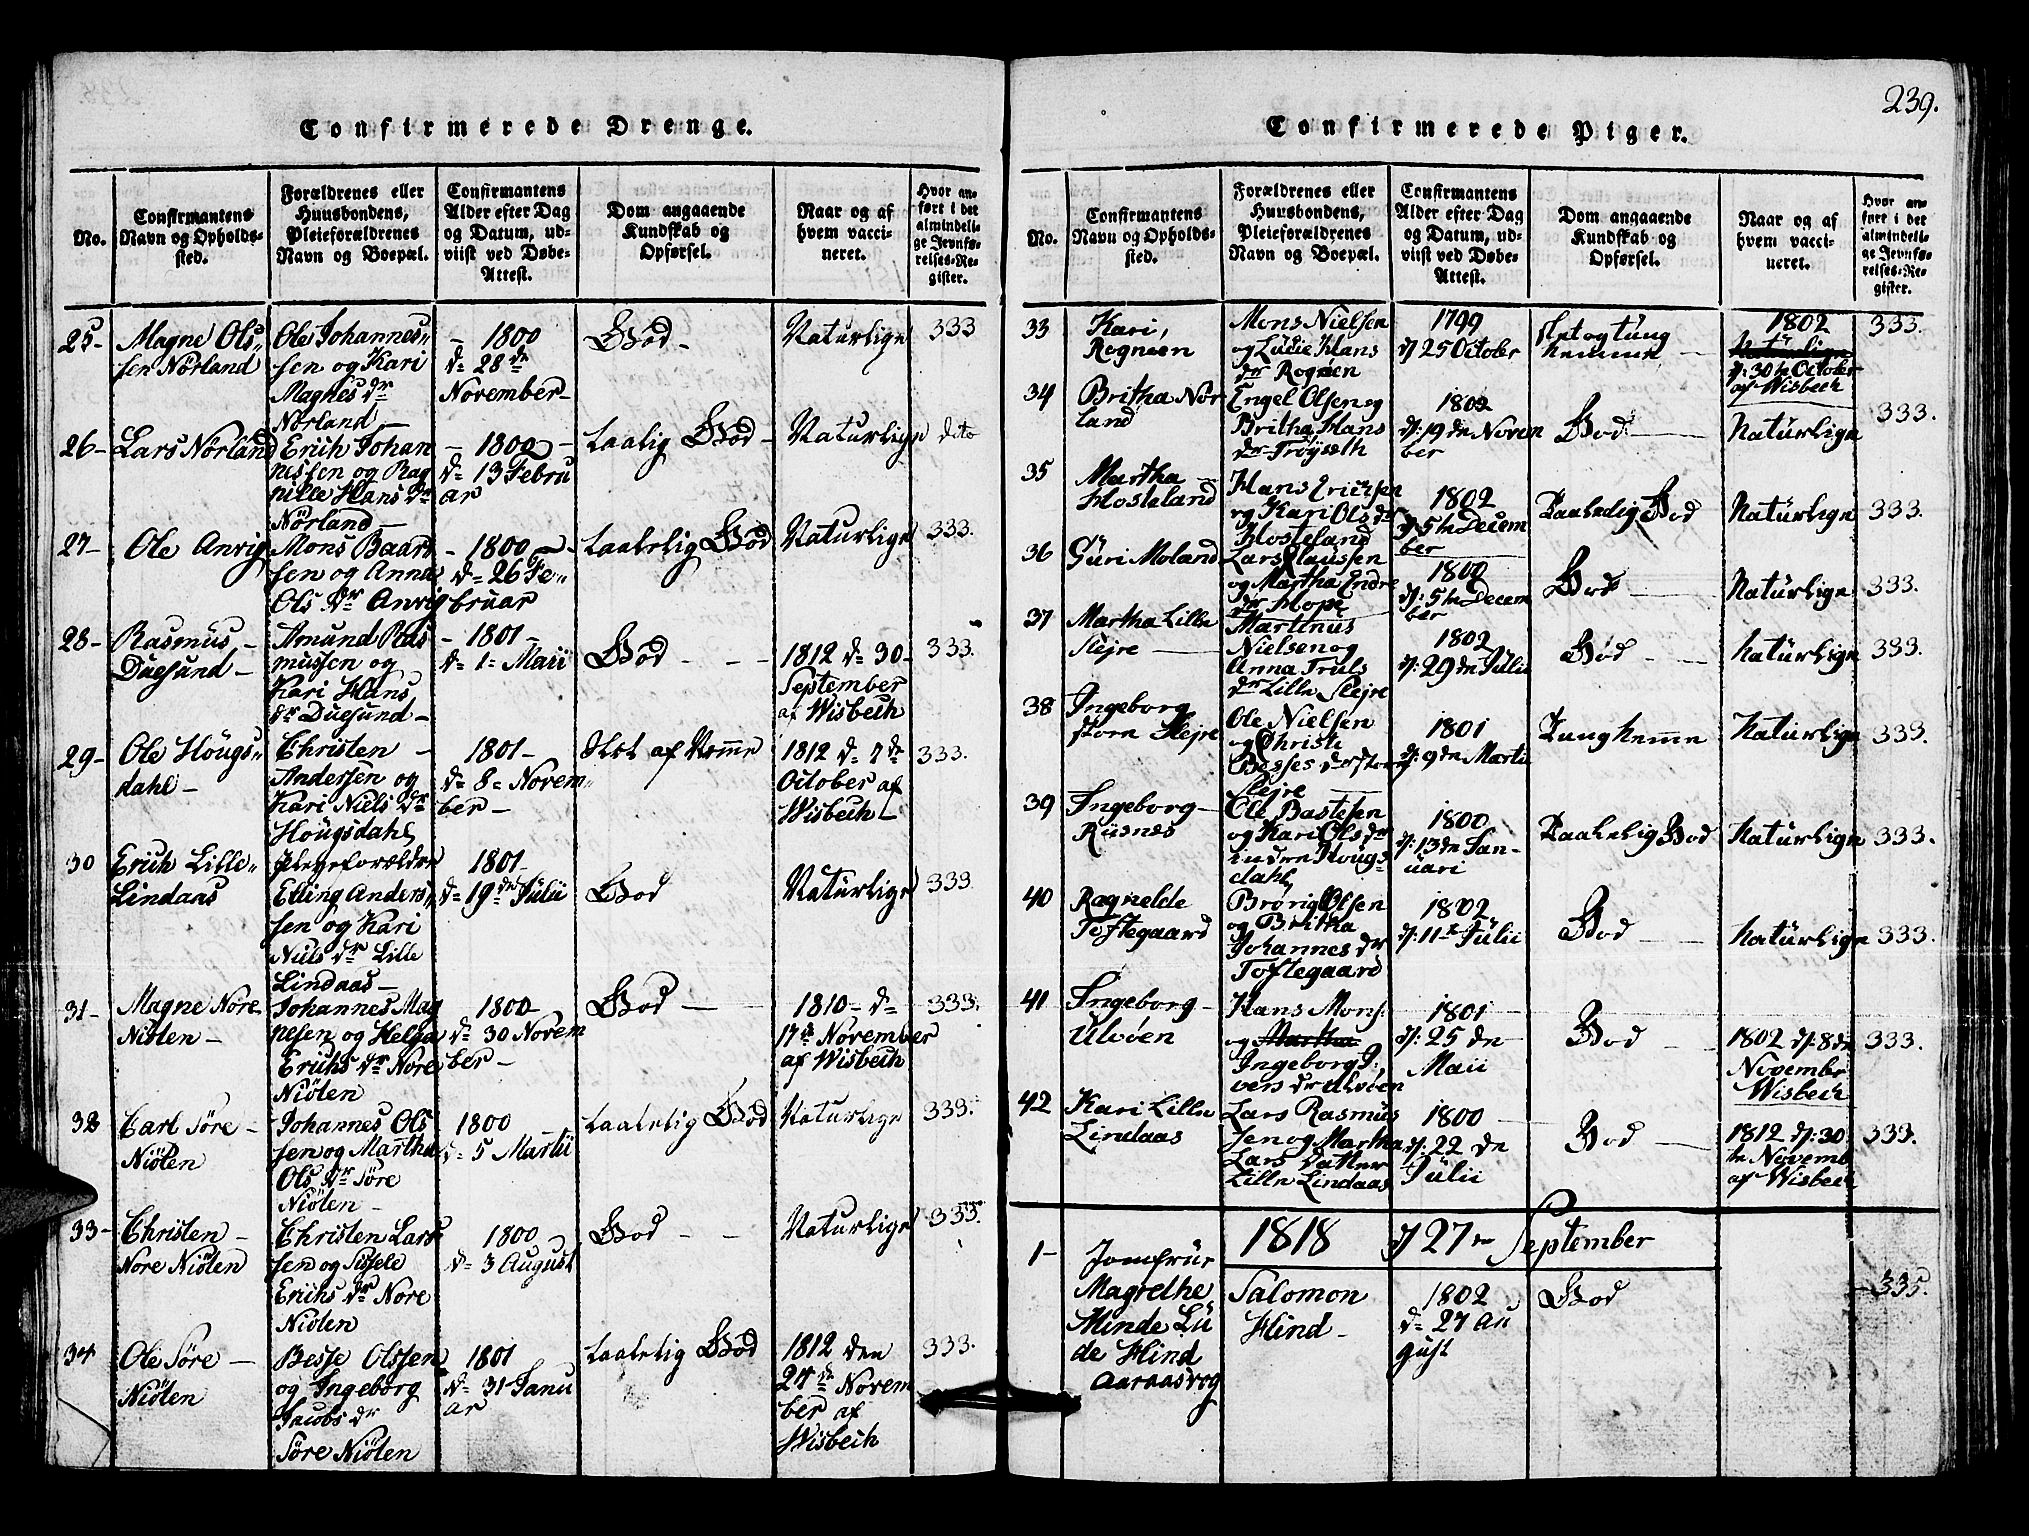 239.
Confirmerede Drenge.
No.
Confirmantens
Navn og Opholds-
sted.
Forældrenes eller
Huusbondens,
Pleieforældrenes
Navn og Boepæl.
Confirmantens
Alder efter Dag
og Datum, ud-
viist ved Døbe-
Attest.
Dom angaaende
Kundskab og
Opførsel.
Naar og af
hvem vacci-
neret.
Hvor an-
ført i det
almindeli-
ge Jevnfø-
relses-Re-
gister.
25-
Magne Ols-
sen Nörland
Ole Johannes-
sen og Kari
Magnes dr
Nörland
- 1800
d= 28 de
November-
God-
Naturlige
333
26-
Lars Nörland
Erich Johan
nessen og Rag
nille Hans dr
Nörland-
- 1800
d= 13 Febru
ar
taalig God-
Naturlige
dito
27-
Ole Anvig
Mons Baard
sen og Anna
Ols dr Anvig
- 1800
d= 26 Fe-
bruar
taalelig God
Naturlige
333.
28-
Rasmus-
Duesund-
Amund Ras
mussen og
Kari Hans
dr Duesund-
- 1801-
d= 1= Maii
God - -
1812 d= 30-
September
af Wisbech
333.
29-
Ole Höugs-
dahl-
Christen-
Andersen og
Kari Niels dr
Höugsdahl
1801-
d= 8= Novem-
ber-
Slet af Nemme
1812 d= 7 de
October af
Wisbech-
333.
30
Erich Lille-
Lindaas
Plegeforældre
Elling Anders-
sen og Kari
Niels dr Lille
Lindaas-
1801-
d= 19 de Julii
God
Naturlige
333
31-
Magne Nore
Niölen-
Johannes Mag
nesen og Helga
Erichs dr Nore
Niölen
1800-
d= 30 Novem
ber-
God-
1810- d=
17 de November
af Wisbech
333.
32
Carl Söre-
Niölen
Johannes Ols
sen og Martha
Ols dr Söre
Niölen-
1800
d= 5 Martii
taalelig God
Naturlige
333.
33-
Christen-
Nore Niölen
Christen Lars
sen og Sissele
Erichs dr Nore
Niölen
1800
d= 3 August
God - -
Naturlige
333.
34
Ole Söre-
Niölen
Besse Olssen
og Ingeborg
Jacobs dr
Söre Niölen
1801
d= 31 Janu
ar
taalelig God
1812 den
24 de Novem
ber af
Wisbech
333.
Confirmerede Piger.
No.
Confirmantens
Navn og Opholds-
sted.
Forældrenes eller
Huusbondens,
Pleieforældrenes
Navn og Boepæl.
Confirmantens
Alder efter Dag
og Datum, ud-
viist ved Døbe-
Attest.
Dom angaaende
Kundskab og
Opførsel.
Naar og af
hvem vacci-
neret.
Hvor an-
ført i det
almindeli-
ge Jevnfø-
relses-Re-
gister.
33
Kari,
Rognöen
Mons Nielsen
og Lucie Hans
dr Rognen
1799
d: 25 October
Slet og tung
nemme-
1802
Naturlige
d: 30 te October
af Wisbech
333.
34
Britha Nör
land
Engel Olsen og
Britha Hans
dr Tröyseth
1802
d: 19 de Novem
ber
God-
Naturlige
333.
35
Martha-
Hosteland
Hans Ericksen
og Kari Ols dr
Hosteland
1802
d: 5 te Decem
ber
Taaledig God
Naturlige
333.
36
Guri Moland
Lars Claussen
og Martha Endre
dr Hope
1800
d: 5 te Decem
ber
God-
Naturlige
333.
37
Martha Lille
Slejre-
Martinus
Nielsen og
Anna Truls
dr Lille Slejre
1802
d: 29 de Julii
God-
Naturlige
333.
38
Ingeborg
Store Slejre
Ole Nielsen
og Christi
Besses dr Store
Slejre
1801
d: 9 de Martii
Tung nemme
Naturlige
333.
39
Ingeborg-
Risnes
Ole Bastesen
og Kari Ols dr
indre Höugs-
dahl
1800
d: 13 de Jan-
uari
Taalelig God
Naturlige
333.
40
Ragnelde
Toftegaard
Brörig Olsen
og Britha
Johannes dr
Toftegaard
1802
d: 11 te Julii
God-
Naturlige
333.
41
Ingeborg-
Ulvöen
Hans Mons:
og Martha
Ingeborg I-
vers dr Ulvöen
1801-
d: 25 de
Maii
God-
1802 d: 8 de
Novembr
Wisbech
333.
42
Kari Lille
Lindaas
Lars Rasmus
sen og Martha
Lars Datter
Lille Lindaas
1800
d: 22 de
Julii
God-
1812 d: 30
te Novemb
af Wisbech
333.
1818 d 27 de September
1-
Jomfrue
Magrethe
Minde Lu
de Hind
Aaraasvog
Salomon
Hind-
1802
d= 27 Au
gust
God
335.